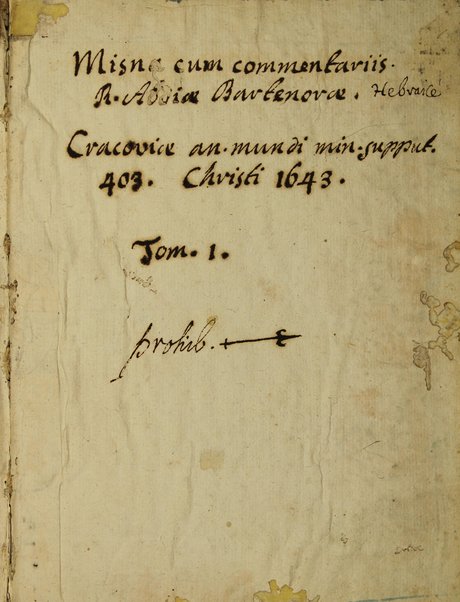 Misna cum commentariis.
R. Abdiæ Bartenoræ. Hebraicè
Cracoviæ an. mundi min. supput.
403. Christi 1643.
Tom. 1.
prohib.